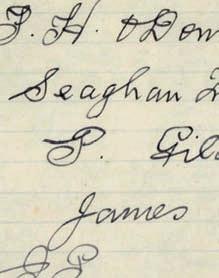 P. H. O'Don
Seaghan
P. Gil
James